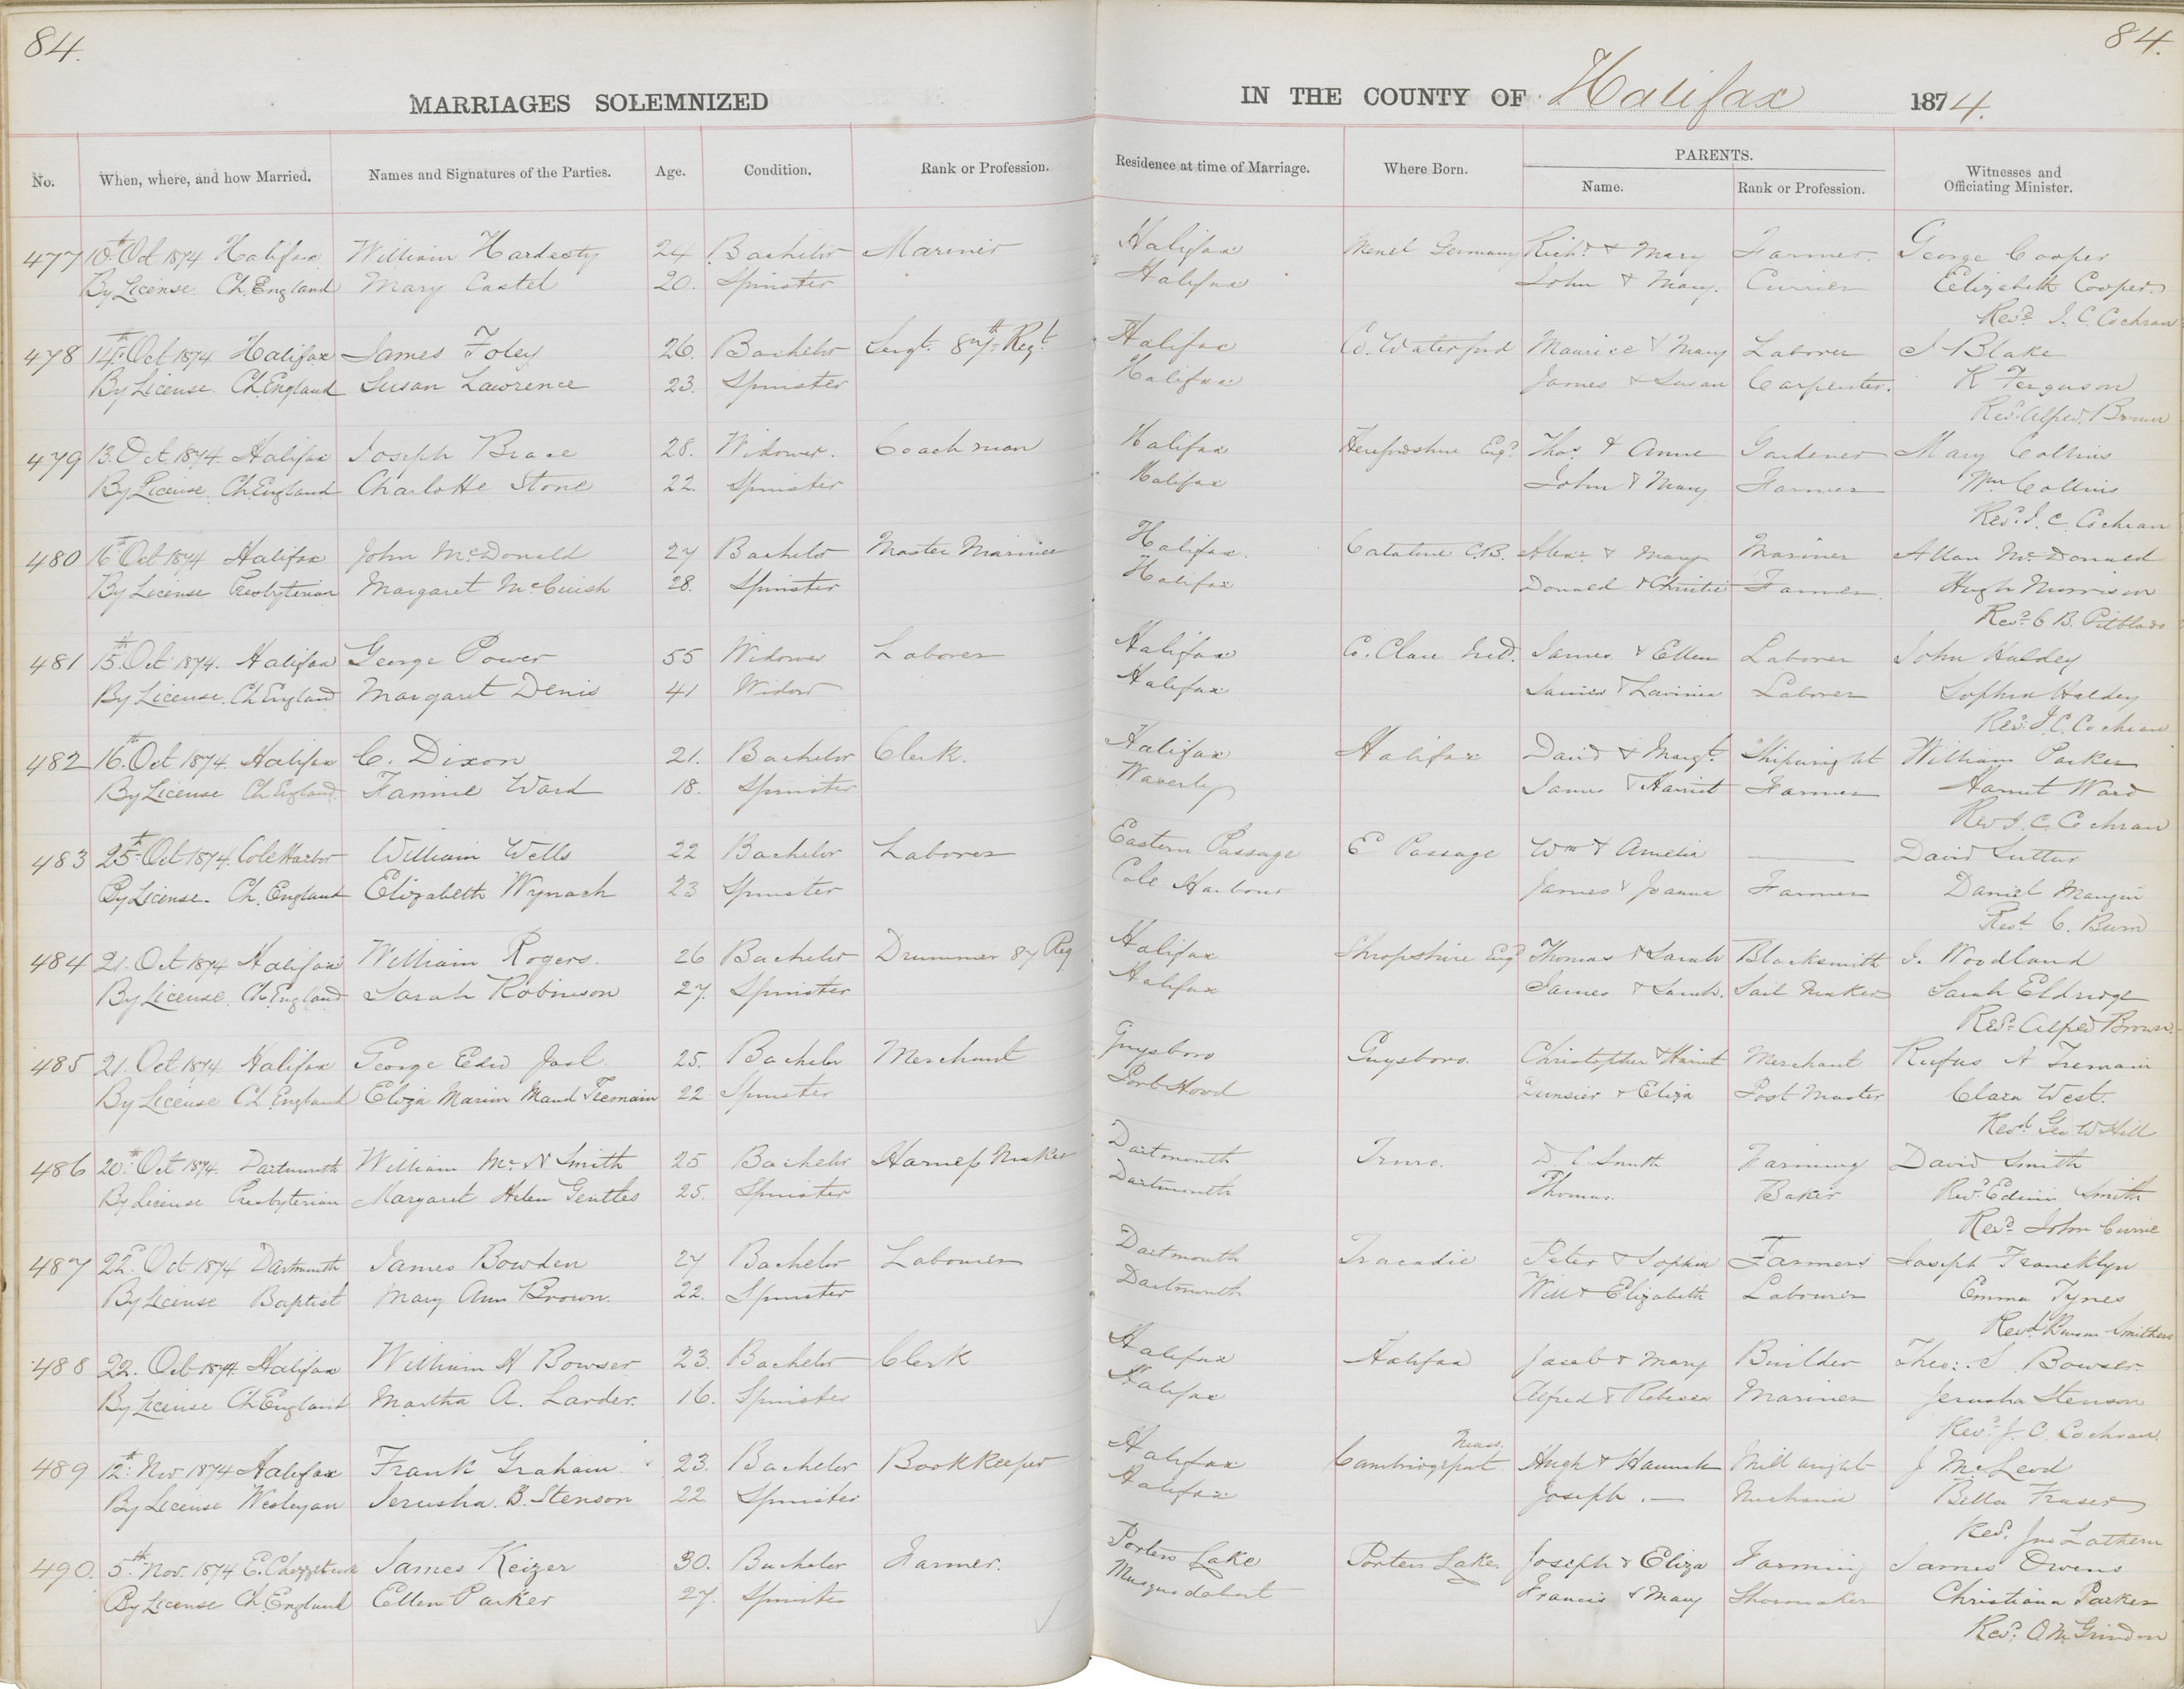 84.
84.
MARRIAGES SOLEMNIZED
IN THE COUNTY OF Halifax 1874.
No. When, where, and how Married. Names and Signatures of the Parties. Age. Condition. Rank or Profession. Residence at time of Marriage. Where Born. PARENTS. Name. Rank or Profession. Witnesses and Officiating Minister.
477 10th Oct 1874 Halifax William Hardesty 24 Bachelor Mariner Halifax Germany Richd & Mary Farmer. George Cooper
By License Ch. England Mary Castel 20. Spinster Halifax John & Mary. Currier Elizabeth Cooper.
Revd J. C. Cochran
478 14th Oct 1874 Halifax James Foley 26. Bachelor Sergt. 87th Regt. Halifax Co. Waterford Maurice & Mary Laborer J Blake
By License. Ch. England Susan Lawrence 23. Spinster Halifax James & Susan Carpenter. R Ferguson
Revd. Alfred Brown
479 13. Oct 1874. Halifax Joseph Brace 28. Widower. Coachman Halifax Herefordshire Engd Thos. & Anne Gardener Mary Collins
By License. Ch. England Charlotte Stone 22. Spinster Halifax John & Mary Farmer Wm Collins
Revd. J. C. Cochran
480 16th Oct 1874 Halifax John McDonald 27 Bachelor Master Mariner Halifax. Catalone C.B. Alexr. & Mary Mariner Allan McDonald
By License Presbyterian Margaret McCuish 28. Spinster Halifax Donald & Christie Farmer. Hugh Morrison
Revd. C. B. Pitblado
481 15th Oct 1874. Halifax George Power 55 Widower Laborer Halifax Co. Clare Ired. James & Ellen Laborer John Haldey
By License. Ch England Margaret Denis 41 Widow Halifax James & Lavinia Laborer Sophia Haldey
Revd. J. C. Cochran
482 16th Oct 1874. Halifax C. Dixon 21. Bachelor Clerk. Halifax Halifax David & Margt. Shipwright William Parker
By License Ch England. Fannie Ward 18. Spinster Waverly James & Harriet Farmer Harriet Ward
Rev J. C. Cochran
483 25th Oct 1874. Cole Harbor William Wells 22 Bachelor Laborer Eastern Passage E Passage Wm & Amelia — David Suttur
By License. Ch. England Elizabeth Wynach 23 Spinster Cole Harbour James & Joanna Farmer Daniel
Revd C. Burn
484 21. Oct 1874 Halifax William Rogers. 26 Bachelor Drummer 87 Reg Halifax Shropshire Engd Thomas & Sarah Blacksmith J. Woodland
By License. Ch. England Sarah Robinson 27. Spinster Halifax James & Sarah. Sail Maker Sarah Eldridge
Revd. Alfred Brown.
485 21. Oct 1874 Halifax George Edwd Jost. 25. Bachelor Merchant Guysboro Guysboro. Christopher & Harriet Merchant Rufus A Tremain
By License Ch England Eliza Marion Maud Tremain 22 Spinster Port Hood & Eliza Post Master Clara West.
Revd. Geo W Hill
486 20th Oct 1874. Dartmouth William McN Smith 25 Bachelor Harness Maker Dartmouth Truro. D C. Smith Farming David Smith
By License Presbyterian Margaret Helen Gentles 25. Spinster Dartmouth Thomas. Baker Revd. Edwin Smith
Revd. John Currie
487 22d. Oct 1874 Dartmouth James Bowden 27 Bachelor Labourer Dartmouth Tracadie Peter & Sophia Farmers Joseph Francklyn
By License Baptist Mary Ann Brown. 22. Spinster Dartmouth Will & Elizabeth Labourer Emma Tynes
Revd. Smithers
488 22. Oct 1874. Halifax William H Bowser 23. Bachelor Clerk Halifax Halifax Jacob & Mary Builder Theo: S. Bowser.
By License Ch England Martha A. Larder. 16. Spinster Halifax Alfred & Rebecca Mariner Jerusha Stenson
Revd. J. C. Cochran.
489 12th. Nov 1874 Halifax Frank Graham. 23. Bachelor Bookkeeper Halifax Cambridgeport Mass. Hugh & Hannah Millwright J McLeod
By License Wesleyan Jerusha. B. Stenson 22 Spinster Halifax Joseph. — Mechanic Bella Fraser
Revd. Jno Lathern
490. 5th. Nov. 1874 E. Chezzetcook James Keizer 30. Bachelor Farmer. Porters Lake Porters Lake Joseph & Eliza Farming James Owens
By License Ch England Ellen Parker 27. Spinster Musquodoboit Francis & Mary Shoemaker Christiana Parker
Revd. O M Grindon